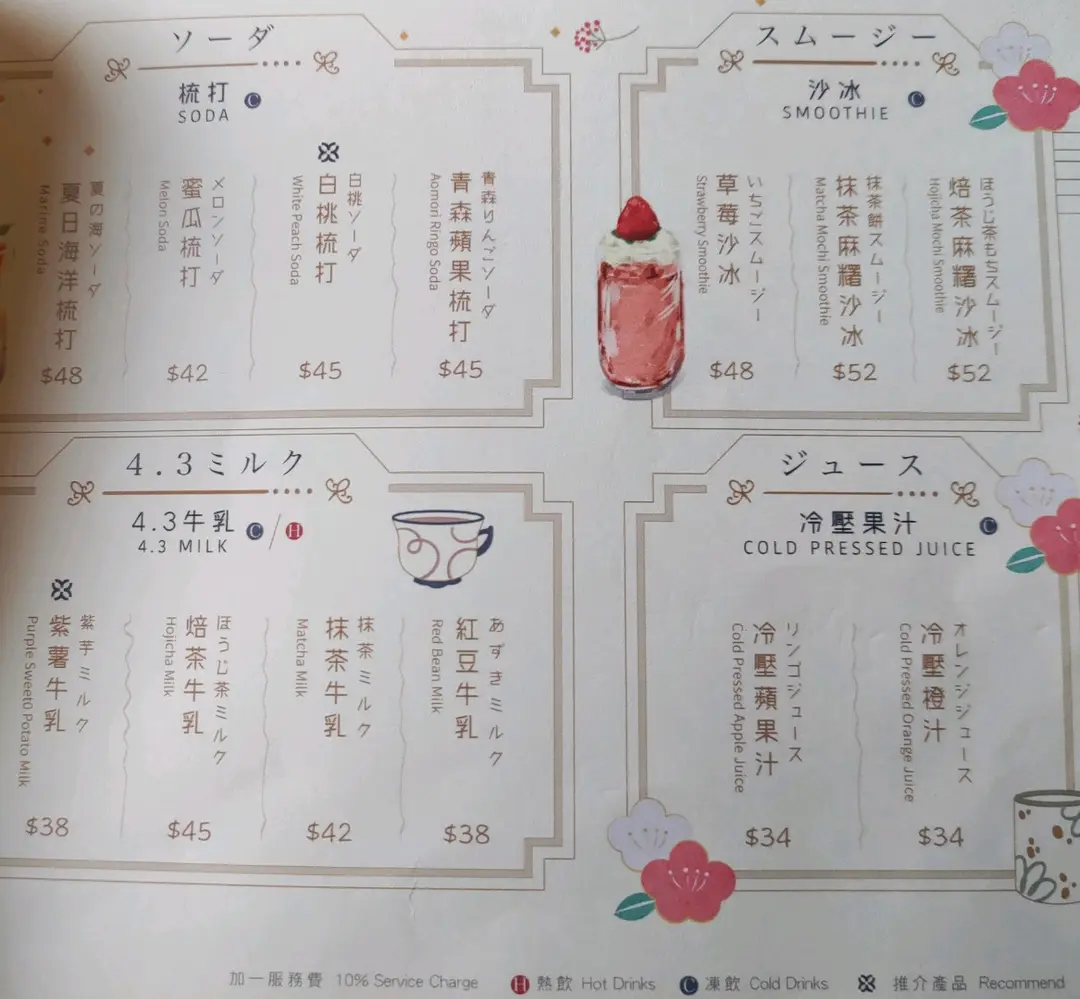 ソーダ
梳打
SODA
青森りんごソーダ
青森蘋果梳打
Aomori Ringo Soda
$45
白桃ソーダ
白桃梳打
White Peach Soda
$45
メロンソーダ
蜜瓜梳打
Melon Soda
$42
夏の海ソーダ
夏日海洋梳打
Marine Soda
$48
スムージー
沙冰
SMOOTHIE
ほうじ茶もちスムージー
焙茶麻糬沙冰
Hojicha Mochi Smoothie
$52
抹茶餅スムージー
抹茶麻糬沙冰
Matcha Mochi Smoothie
$52
いちごスムージー
草莓沙冰
Strawberry Smoothie
$48
4.3ミルク
4.3牛乳
4.3 MILK
C/H
あずきミルク
紅豆牛乳
Red Bean Milk
$38
抹茶ミルク
抹茶牛乳
Matcha Milk
$42
ほうじ茶ミルク
焙茶牛乳
Hojicha Milk
$45
紫芋ミルク
紫薯牛乳
Purple Sweet0 Potato Milk
$38
ジュース
冷壓果汁
COLD PRESSED JUICE
オレンジジュース
冷壓橙汁
Cold Pressed Orange Juice
$34
リンゴジュース
冷壓蘋果汁
Cold Pressed Apple Juice
$34
加一服務費 10% Service Charge H 熱飲 Hot Drinks C 凍飲 Cold Drinks 推介產品 Recommend